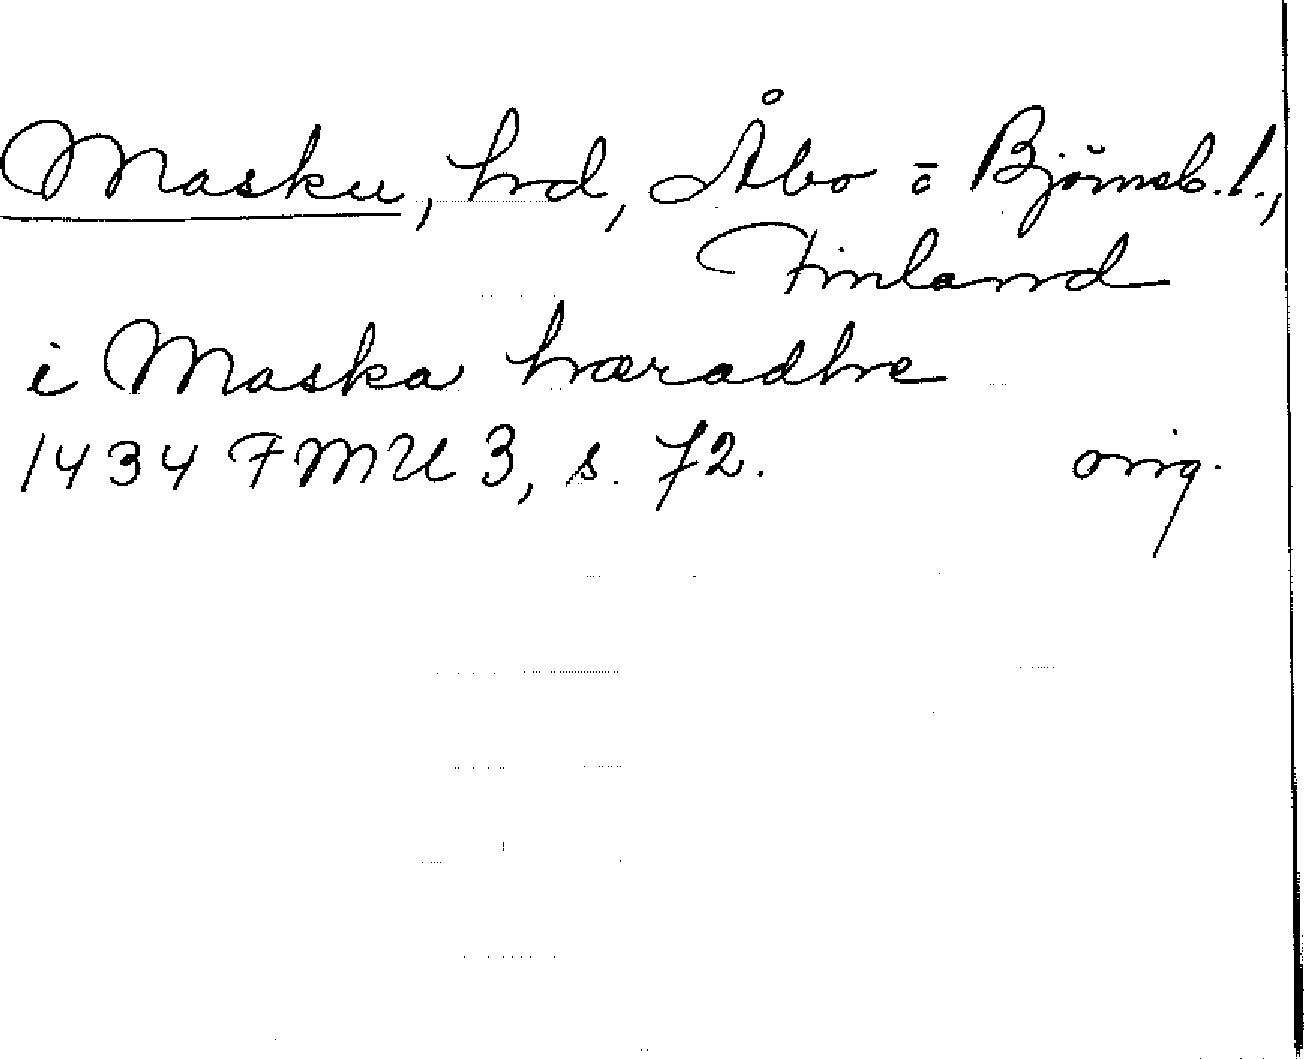 Masku, hd, Åbo o Björneb. l.,
Finland
i Maska hæradhe
1434 FMU 3, s. 72. orig.